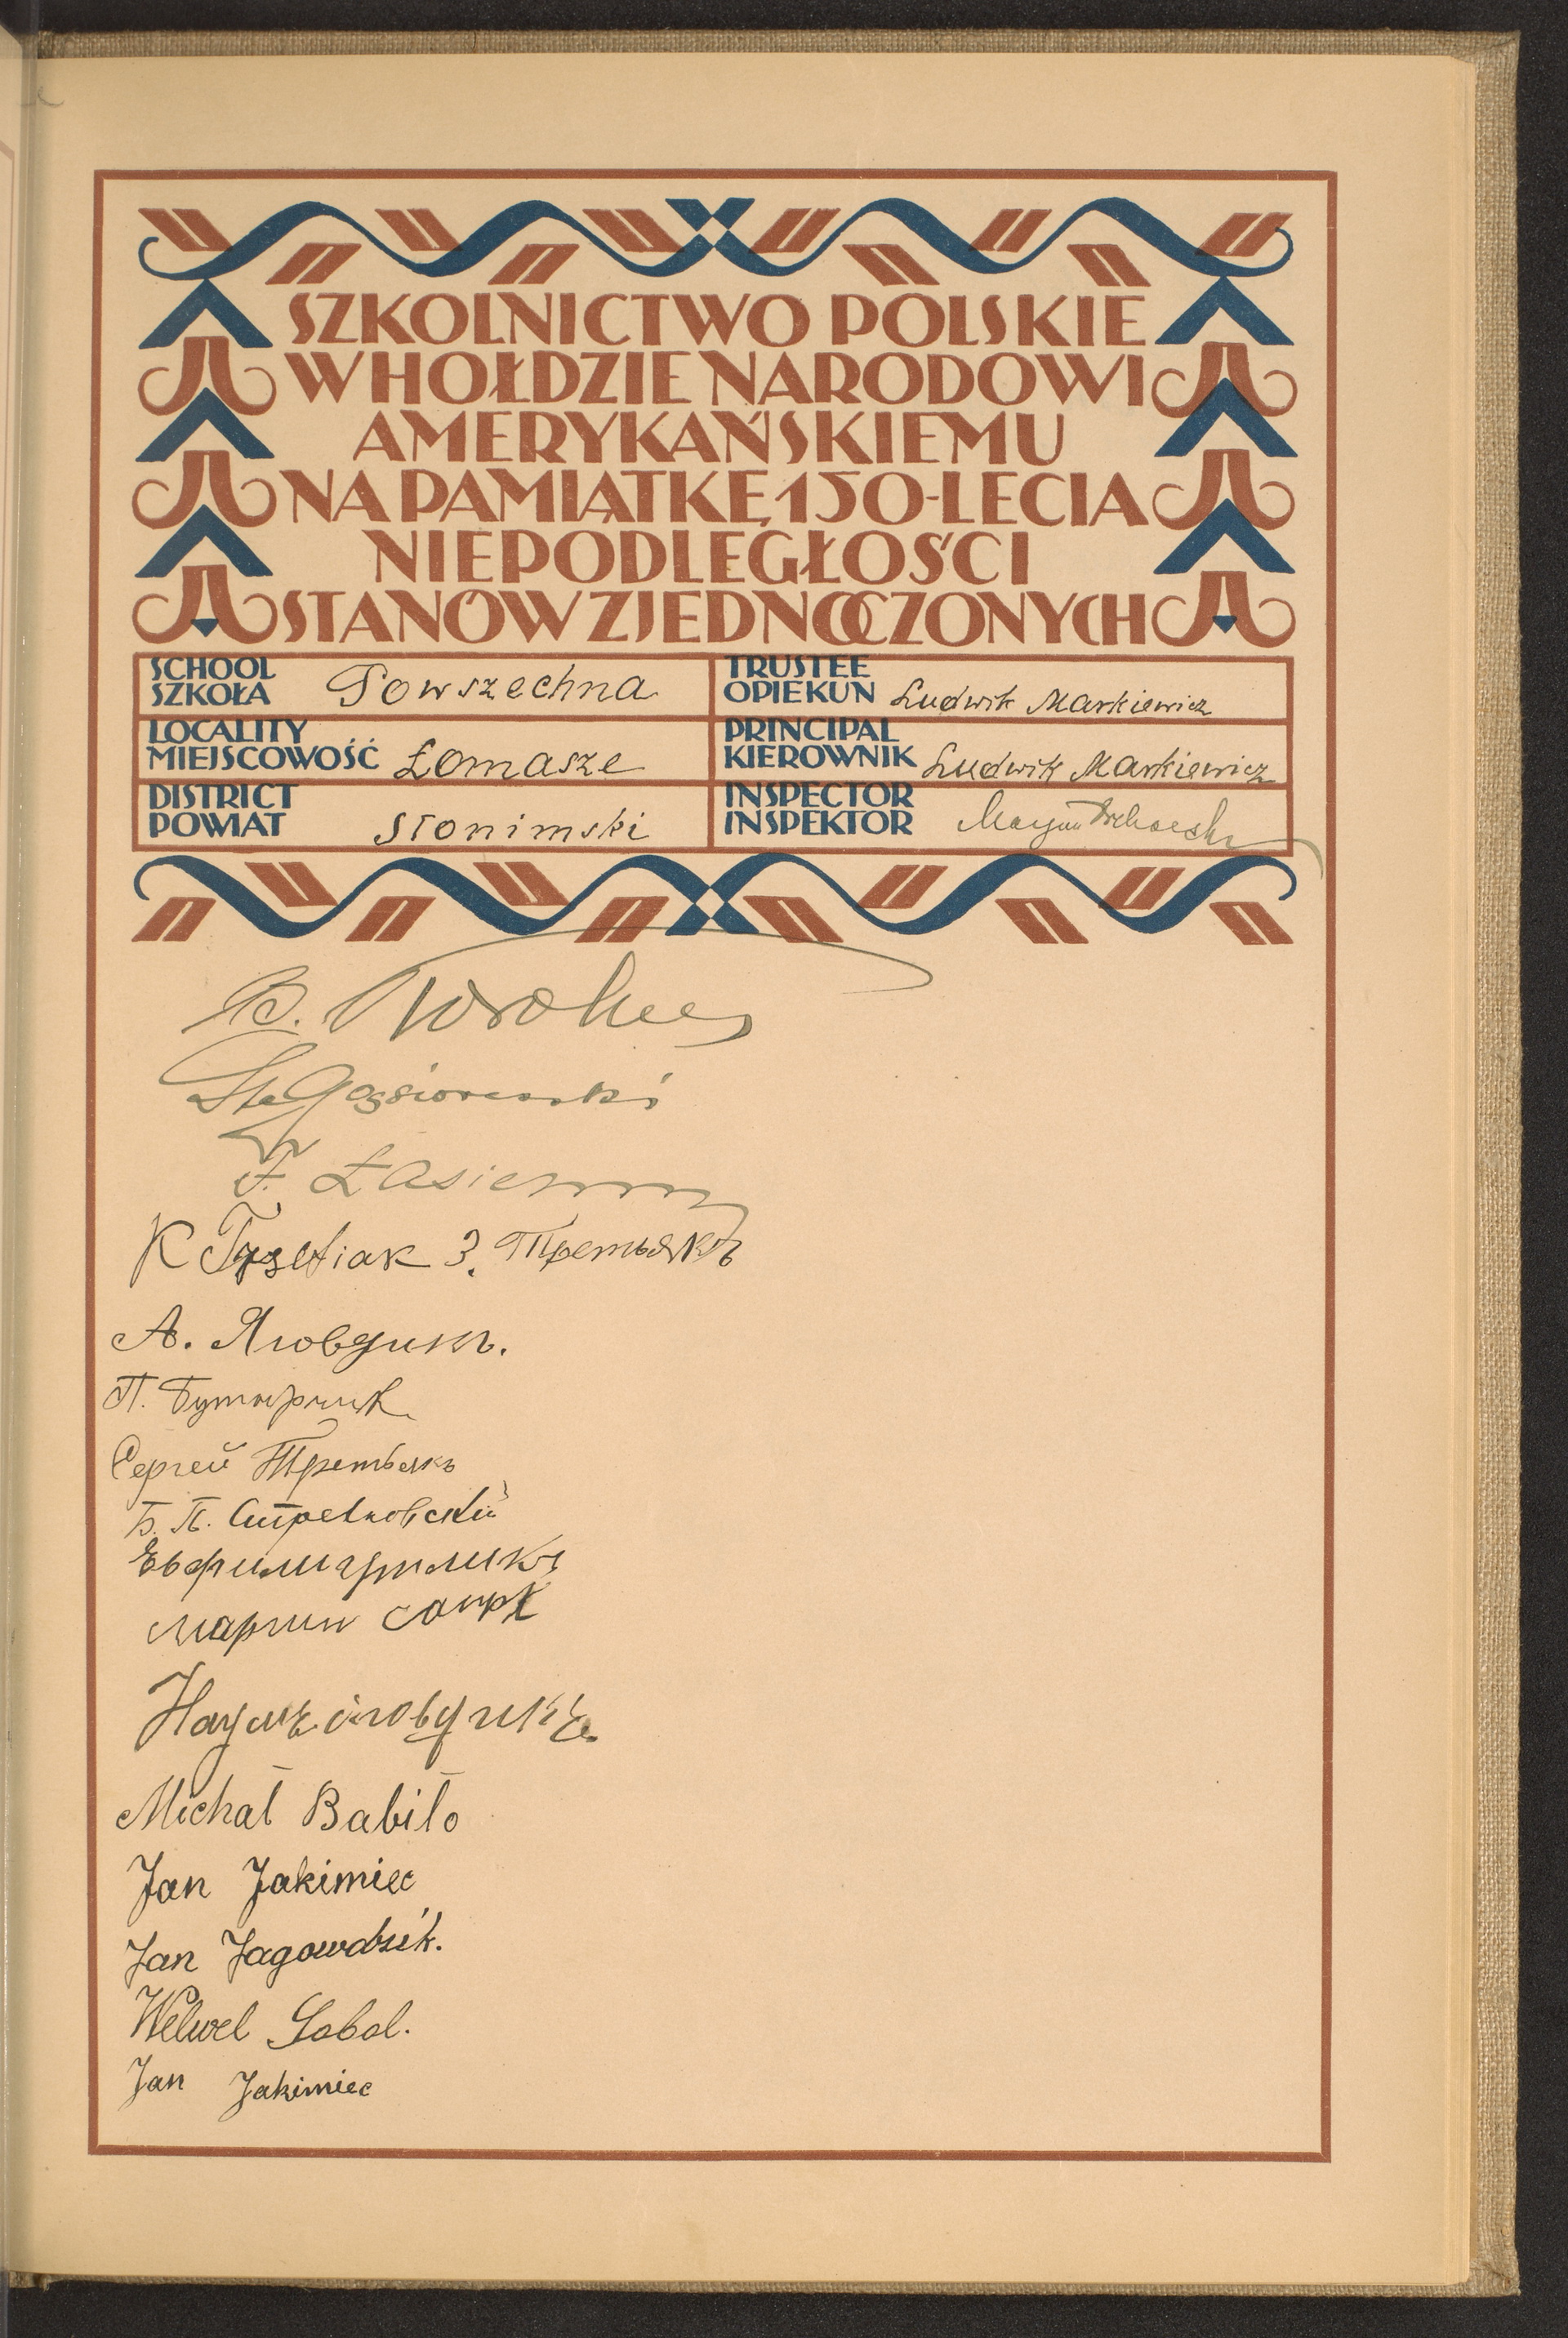 SZKOLNICTWO POLSKIE
W HOŁDZIE NARODOWI
AMERYKAŃSKIEMU
NA PAMIĄTKĘ 150-LECIA
NIEPODLEGŁOŚCI
STANÓW ZJEDNOCZONYCH
SCHOOL
SZKOŁA Powszechna
TRUSTEE
OPIEKUN Ludwik Markiewicz
LOCALITY
MIEJSCOWOŚĆ Łomasze
PRINCIPAL
KIEROWNIK Ludwik Markiewicz
DISTRICT
POWIAT Słonimski
INSPECTOR
INSPEKTOR Maryan
B.
St Gąsiorowski
F.
K 3. Третьякъ
А.
П.
Сергей Третьякъ
Б. П.
Michał Babiło
Jan Jakimiec
Jan Jagowdzik.
Welwel Sobol.
Jan Jakimiec